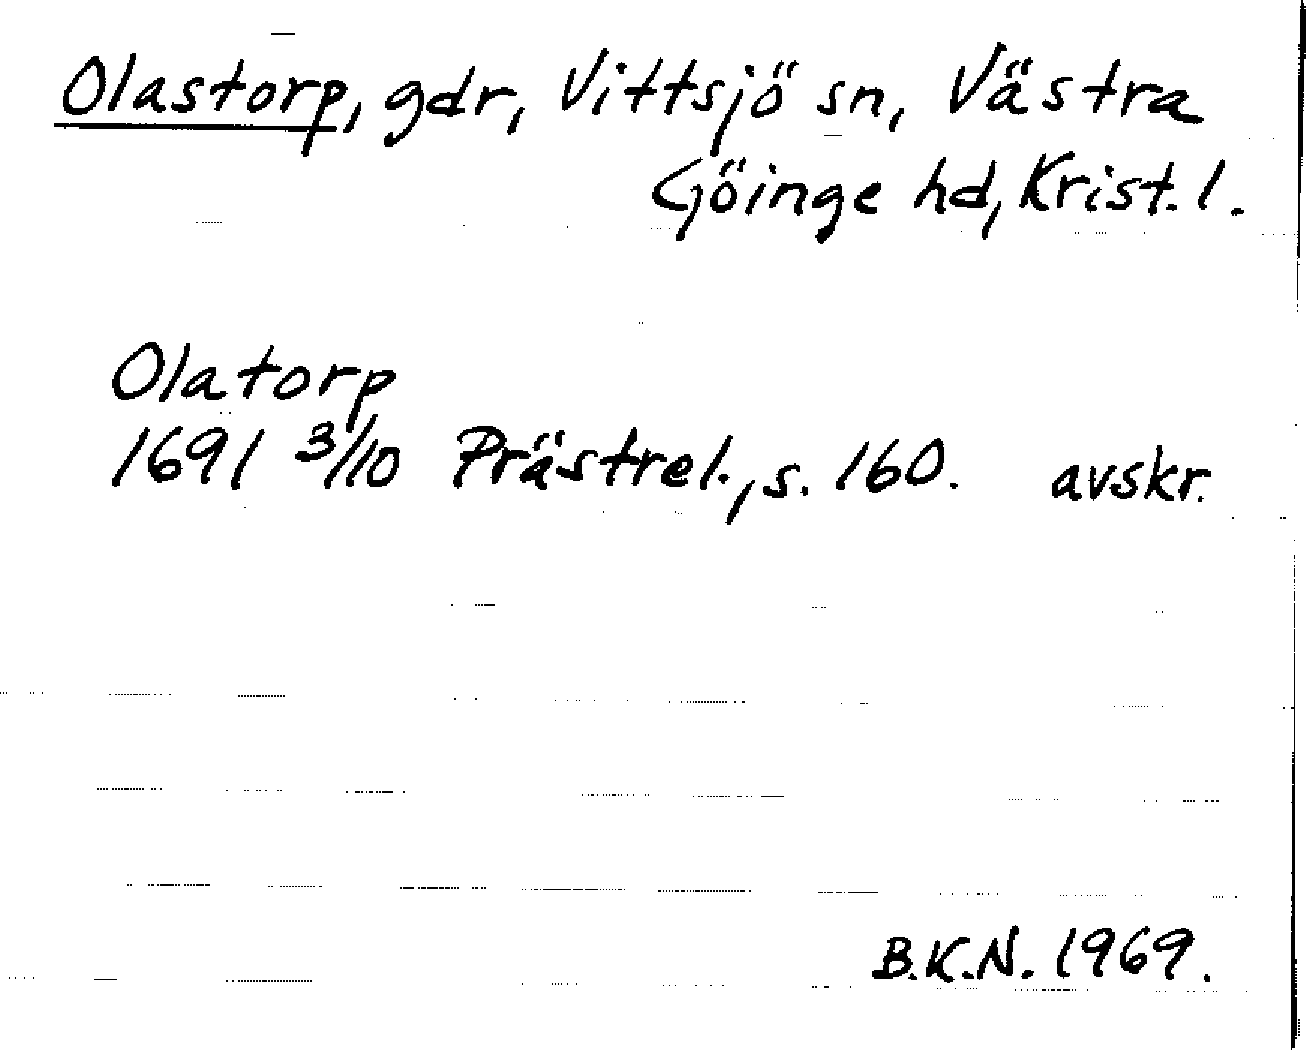 Olastorp, gdr, Vittsjö sn, Västra
Göinge hd, Krist. l.
Olatorp
1691 3/10 Prästrel., s. 160. avskr.
B.K.N. 1969.